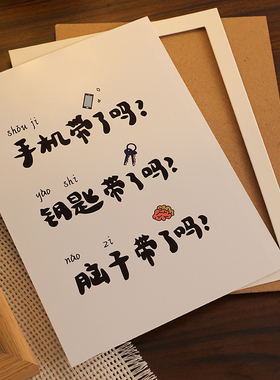 shǒu jī
手机带了吗?
yào shi
钥匙带了吗?
nǎo zi
脑子带了吗?